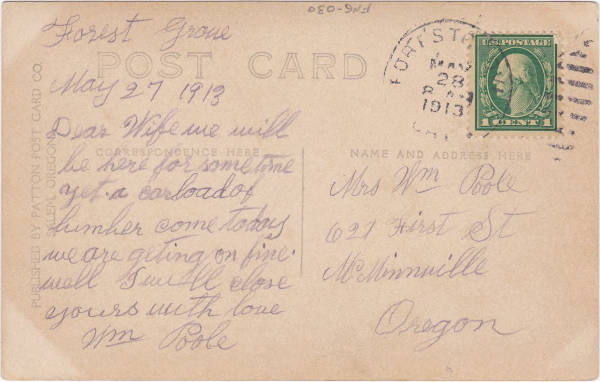 FNG-030
Forest Grove
POST CARD
May 27 1913
Dear Wife we will
be here for some time
yet. a carload of
lumber come today
we are geting on fine.
well I will close
yours with love
Wm Poole
CORRESPONDENCE HERE
PUBLISHED BY PATTON POST CARD CO.
SALEM, OREGON
U.S. POSTAGE
1 CENT 1
MAY
28
1913
NAME AND ADDRESS HERE
Mrs Wm Poole
627 First St
McMinnville
Oregon